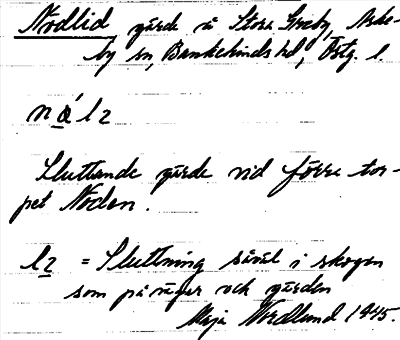 Nodlid gärde å Stora Greby, Aske-
by sn, Bankekinds hd, Östg. l.
Sluttande gärde vid förre tor-
pet Noden.
= Sluttning såväl i skogen
som på vägar och gärden
Maja Nordlund 1945.